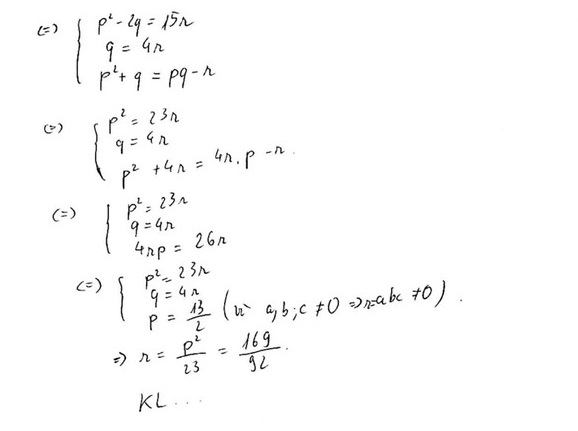 (=) { p² - 2q = 15r
q = 4r
p² + q = pq - r
(=) { p² = 23r
q = 4r
p² + 4r = 4r.p - r.
(=) { p² = 23r
q = 4r
4rp = 26r
(=) { p² = 23r
q = 4r
p = 13/2 (vì a,b;c ≠ 0 => r=abc ≠ 0).
=> r = p²/23 = 169/92.
KL ...